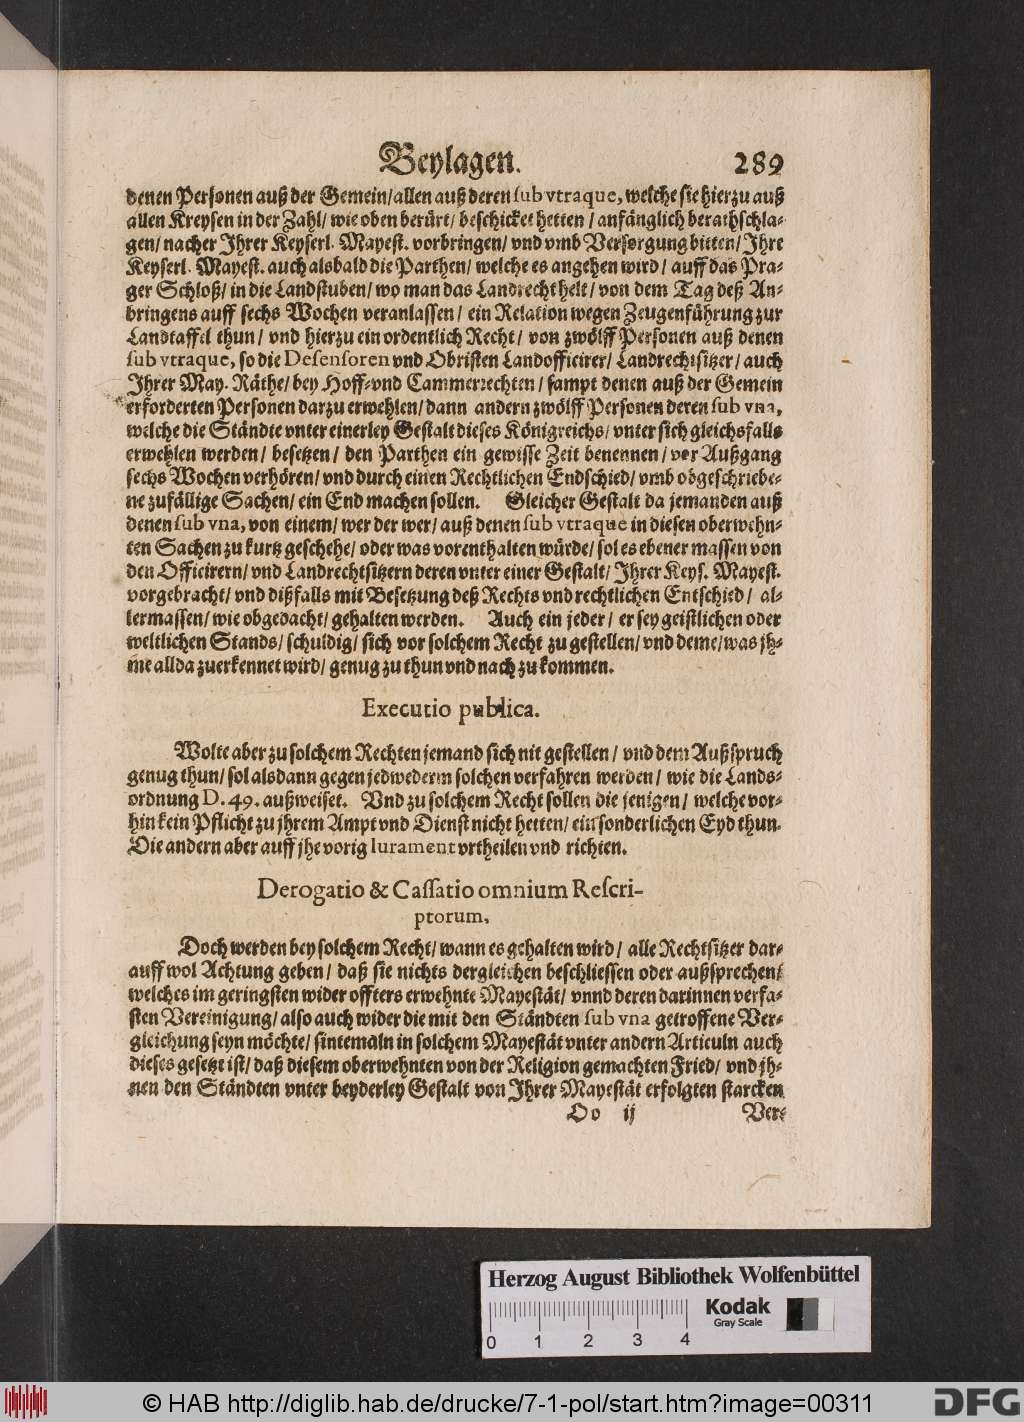 Beylagen. 289
denen Personen auß der Gemein/allen auß deren sub vtraque, welche sie hierzu auß
allen Kreysen in der Zahl/ wie oben berürt/ beschicket hetten / anfänglich berathschla-
gen/ nacher Ihrer Keyserl. Mayest. vorbringen/ vnd vmb Versorgung bitten/ Ihre
Keyserl. Mayest. auch alsbald die Parthen/ welche es angehen wird/ auff das Pra-
ger Schloß/ in die Landstuben/ wo man das Landrecht helt/ von dem Tag deß An-
bringens auff sechs Wochen veranlassen/ ein Relation wegen Zeugenführung zur
Landtaffel thun/ vnd hierzu ein ordentlich Recht/ von zwölff Personen auß denen
sub vtraque, so die Defensoren vnd Obristen Landofficirer/ Landrechtsitzer/ auch
Ihrer May. Räthe/ bey Hoff- vnd Cammerrechten/ sampt denen auß der Gemein
erforderten Personen darzu erwehlen/ dann andern zwölff Personen deren sub vna,
welche die Ständte vnter einerley Gestalt dieses Königreichs/ vnter sich gleichsfalls
erwehlen werden/ besetzen/ den Parthen ein gewisse Zeit benennen/ vor Außgang
sechs Wochen verhören/ vnd durch einen Rechtlichen Endschied/ vmb obgeschriebe-
ne zufällige Sachen/ ein End machen sollen. Gleicher Gestalt da jemanden auß
denen sub vna, von einem/ wer der wer/ auß denen sub vtraque in diesen oberwehn-
ten Sachen zu kurtz geschehe/ oder was vorenthalten würde/ sol es ebener massen von
den Officirern/ vnd Landrechtsitzern deren vnter einer Gestalt/ Ihrer Keys. Mayest.
vorgebracht/ vnd dißfalls mit Besetzung deß Rechts vnd rechtlichen Entschied/ al-
lermassen/ wie obgedacht/ gehalten werden. Auch ein jeder/ er sey geistlichen oder
weltlichen Stands/ schuldig/ sich vor solchem Recht zu gestellen/ vnd deme/ was jh-
me allda zuerkennet wird/ genug zu thun vnd nach zu kommen.
Executio publica.
Wolte aber zu solchem Rechten jemand sich nit gestellen / vnd dem Außspruch
genug thun/ sol alsdann gegen jedwederm solchen verfahren werden/ wie die Lands-
ordnung D. 49. außweiset. Vnd zu solchem Recht sollen die jenigen/ welche vor-
hin kein Pflicht zu jhrem Ampt vnd Dienst nicht hetten/ ein sonderlichen Eyd thun.
Die andern aber auff jhe vorig Iurament vrtheilen vnd richten.
Derogatio & Cassatio omnium Rescri-
ptorum.
Doch werden bey solchem Recht/ wann es gehalten wird/ alle Rechtsitzer dar-
auff wol Achtung geben/ daß sie nichts dergleichen beschliessen oder außsprechen/
welches im geringsten wider offters erwehnte Mayestät/ vnnd deren darinnen verfa-
sten Vereinigung/ also auch wider die mit den Ständten sub vna getroffene Ver-
gleichung seyn möchte/ sintemaln in solchem Mayestät vnter andern Articuln auch
dieses gesetzt ist/ daß diesem oberwehnten von der Religion gemachten Fried/ vnd jh-
nen den Ständten vnter beyderley Gestalt von Ihrer Mayestät erfolgten starcken
Oo ij Ver-
Herzog August Bibliothek Wolfenbüttel
Kodak
Gray Scale
0 1 2 3 4
© HAB http://diglib.hab.de/drucke/7-1-pol/start.htm?image=00311
DFG